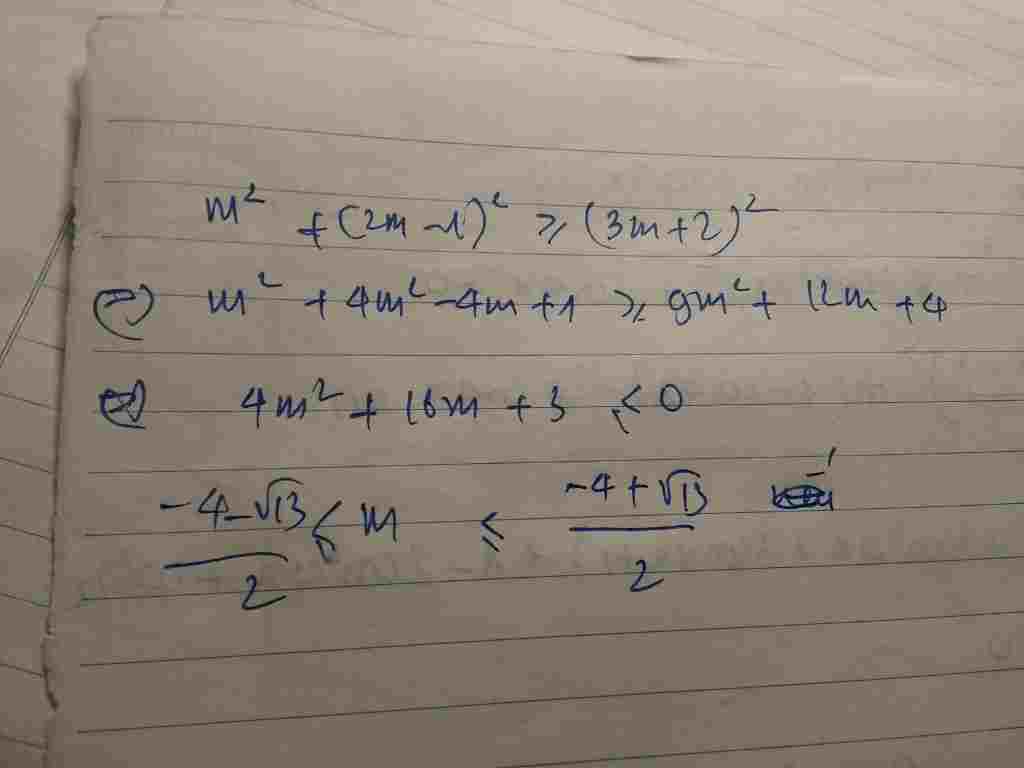 m² + (2m - 1)² ≥ (3m + 2)²
⇔ m² + 4m² - 4m + 1 ≥ 9m² + 12m + 4
⇔ 4m² + 16m + 3 ≤ 0
(-4 - √13)/2 ≤ m ≤ (-4 + √13)/2